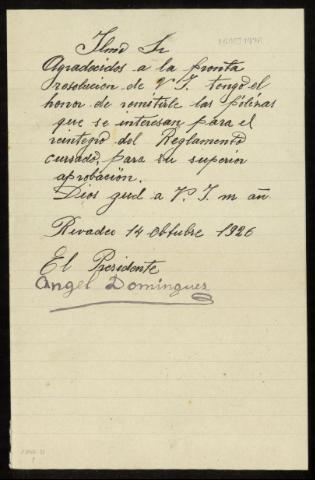 Ilmo Sr
Agradecidos a la pronta
resolucion de V. I. tengo el
honor de remitirle las pólizas
que se interesan para el
reintegro del Reglamento
cursado, para su superior
aprobación.
Dios gud a V. I. m añ
Rivadeo 14 Octubre 1926
El Presidente
Angel Dominguez